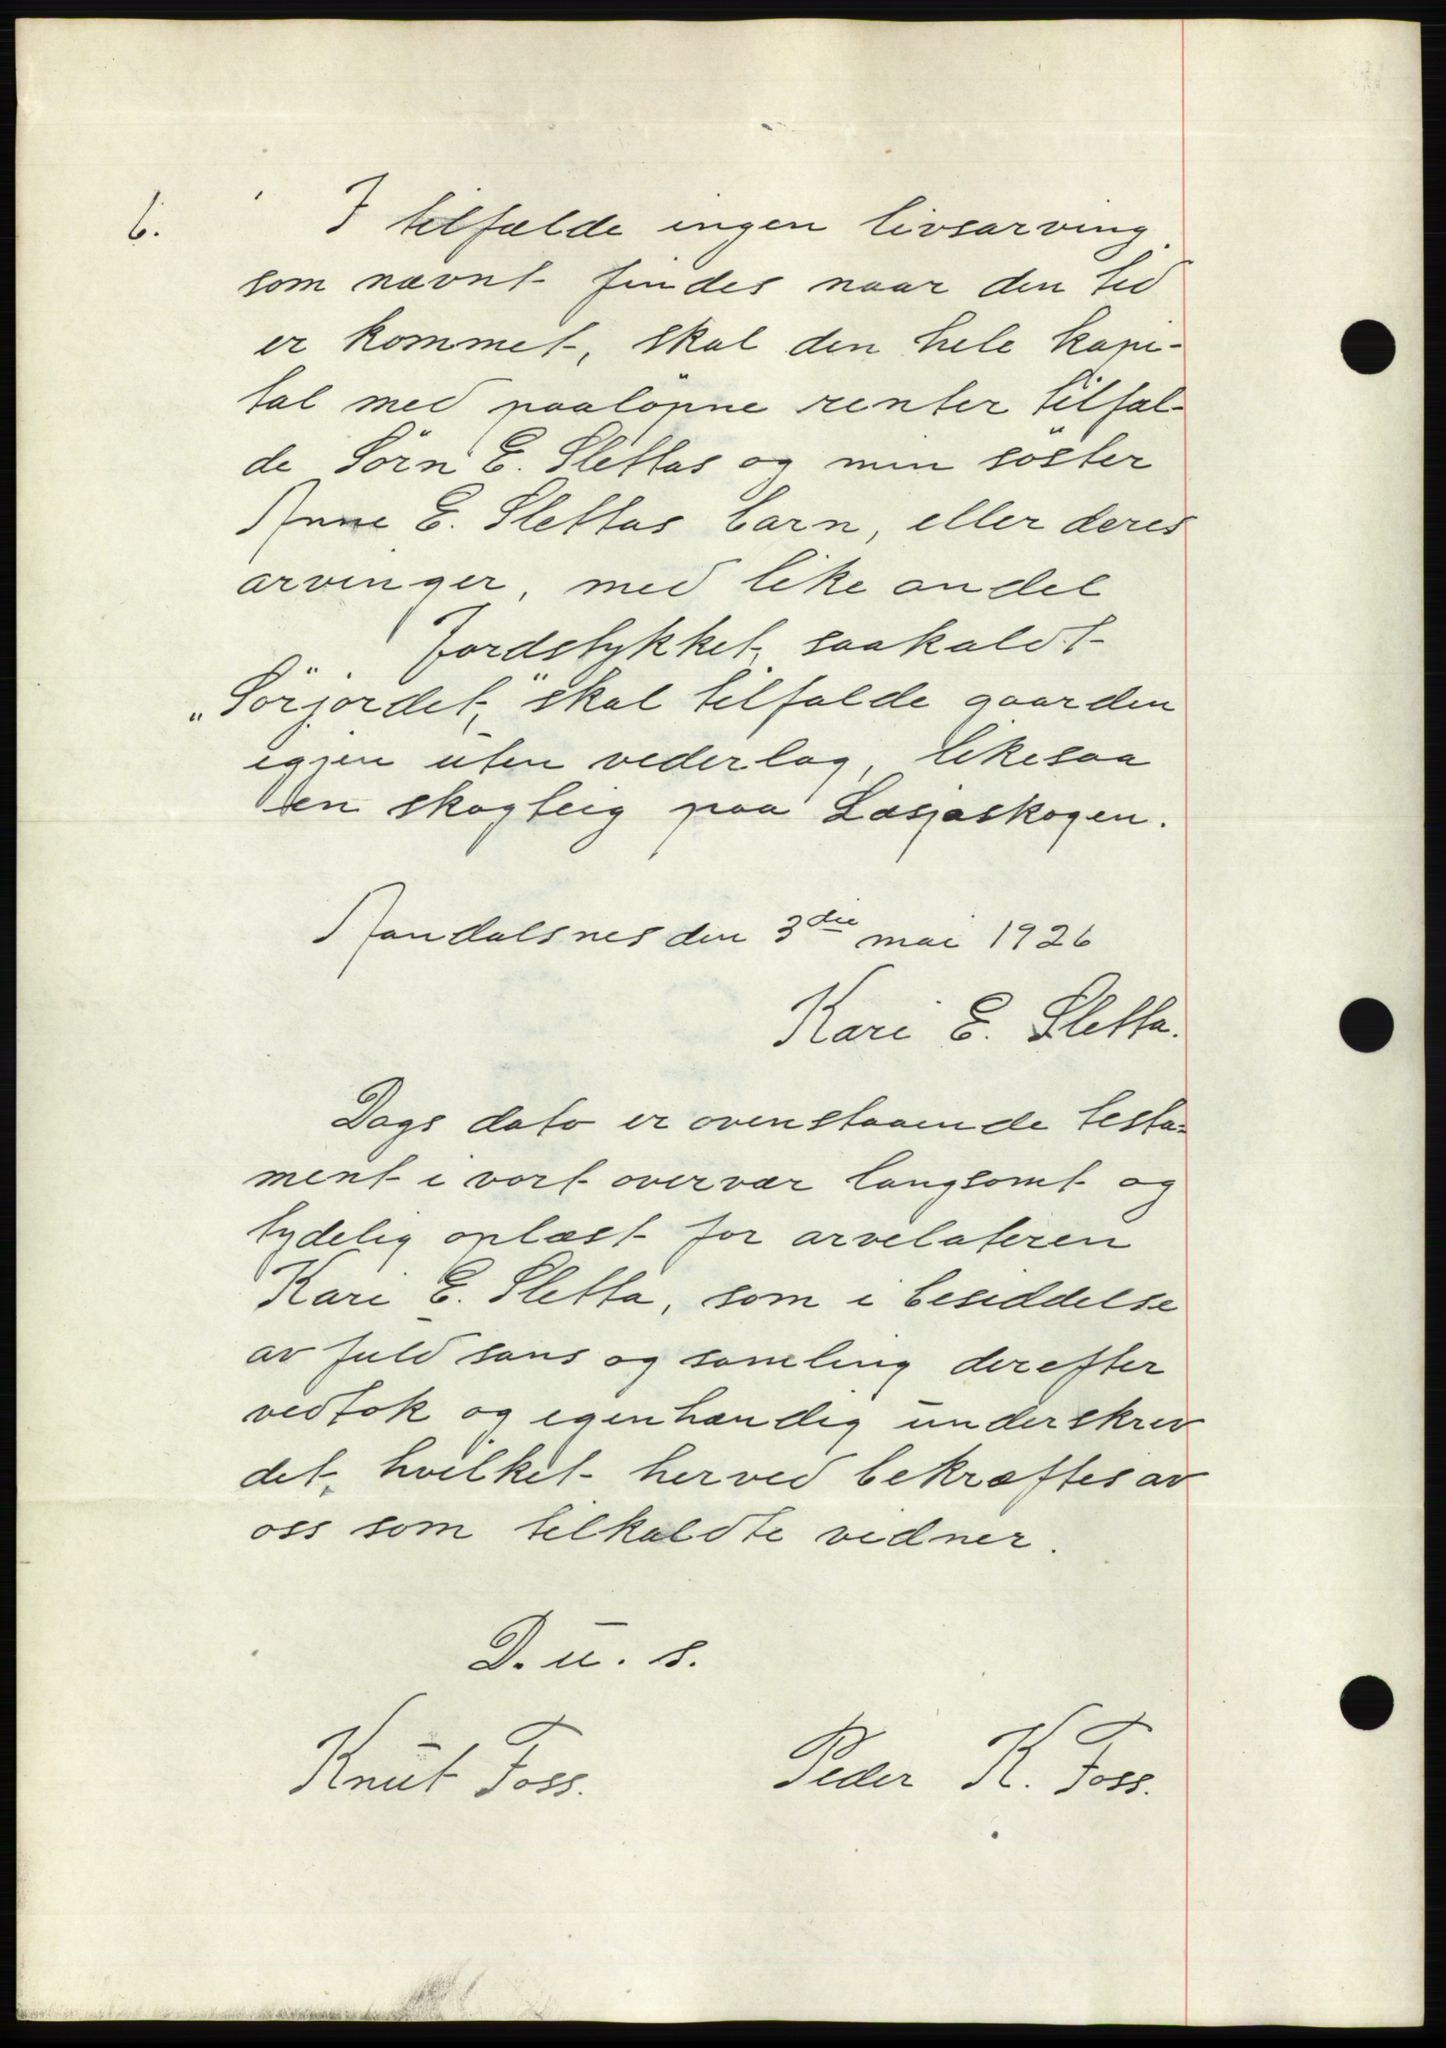 6. I tilfælde ingen livsarving
som nævnt findes naar den tid
er kommet, skal den hele kapi-
tal med paaløpne renter tilfal-
de Sörn E. Slettas og min søster
Anne E. Slettas barn, eller deres
arvinger, med like andel
Jordstykket, saakaldt
„Sörjordet," skal tilfalde gaarden
igjen uten vederlag, likesaa
en skogteig paa Læsjaskogen.
Aandalsnes den 3die mai 1926
Kari E. Sletta.
Dags dato er ovenstaaende testa-
ment i vort overvær langsomt og
tydelig oplæst for arvelateren
Kari E. Sletta, som i besiddelse
av fuld sans og samling derefter
vedtok og egenhændig underskrev
det, hvilket herved bekræftes av
oss som tilkaldte vidner.
D. u. s.
Knut Foss. Peder K. Foss.